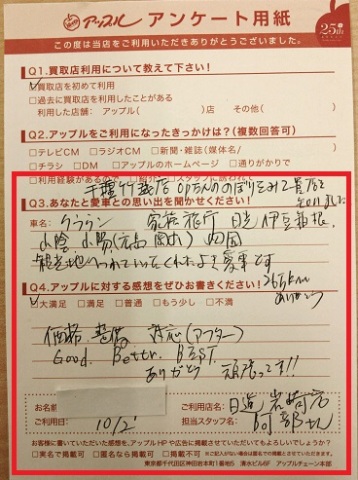 アップル アンケート用紙
25
この度は当店をご利用いただきありがとうございました。
Q1.買取店利用について教えて下さい!
☑買取店を初めて利用
□過去に買取店を利用したことがある
利用した店舗:アップル( )店 その他( )
Q2.アップルをご利用になったきっかけは?(複数回答可)
□テレビCM □ラジオCM □新聞・雑誌(媒体名/ )
□チラシ □DM □アップルのホームページ □通りがかりで
□利用経験があるので
Q3.あなたと愛車との思い出をお聞かせください!
車名:クラウン 家族旅行 日光 伊豆箱根
山陰 山陽(広島 岡山) 四国
観光地へつれていってくれたよき愛車です
Q4.アップルに対する感想をぜひお書きください!
26万km
ありがとう
☑大満足 □満足 □普通 □もう少し □不満
価格 整備 対応(アフター)
Good. Better. BEST
ありがとう 頑張って!!
お名前
ご利用日: 10/2
ご利用店名: 日造 岩崎店
担当スタッフ名: 阿部さん
お客様に書いていただいた感想を、アップルHPや広告に掲載させていただいてもよろしいでしょうか?
□実名で掲載可 □匿名なら掲載可 □掲載不可
東京都千代田区神田岩本町1番地5 清水ビル6F アップルチェーン本部